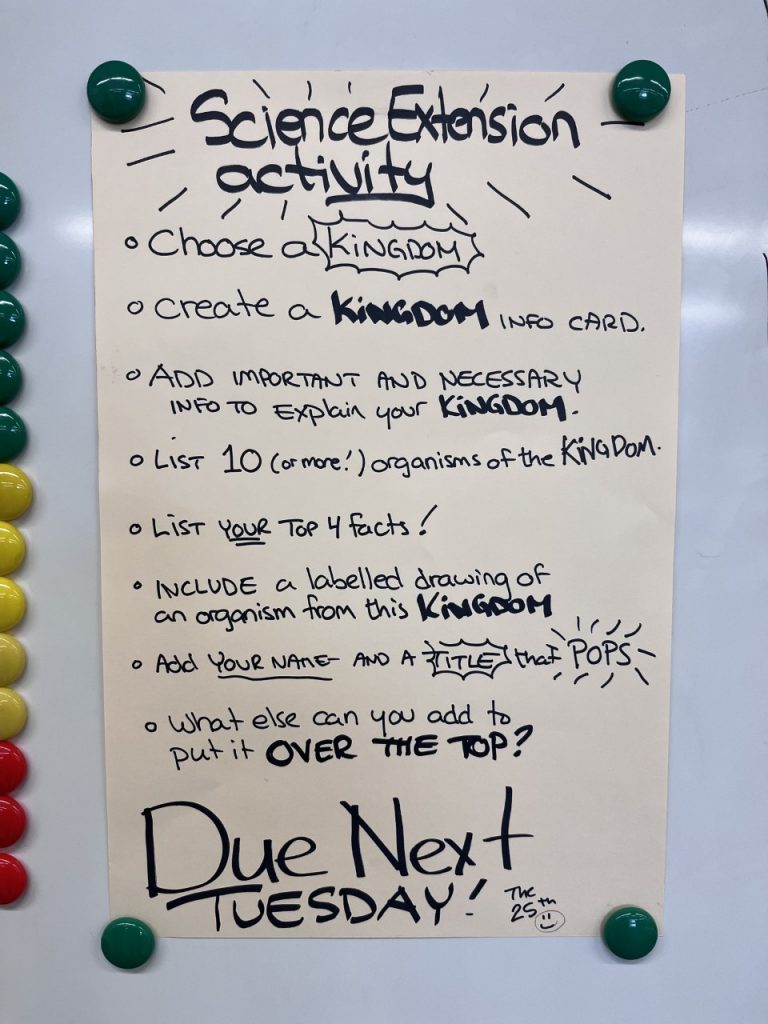 Science Extension
activity
• Choose a KiNGDOM
• Create a KiNGDOM INFO CARD.
• ADD IMPORTANT AND NECESSARY
INFO TO Explain your KiNGDOM.
• LIST 10 (or more!) organisms of the KiNGDOM.
• LIST YOUR TOP 4 facts!
• INCLUDE a labelled drawing of
an organism from this KiNGDOM
• Add YOUR NAME AND A TITLE that POPS
• What else can you add to
put it OVER THE TOP?
Due Next
TUESDAY! The
25th